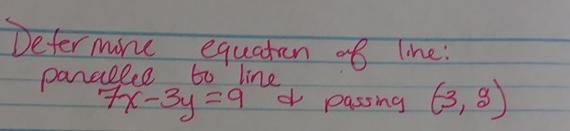 Determine equation of line:
parallel to line
7x-3y=9 & passing (3, 9)